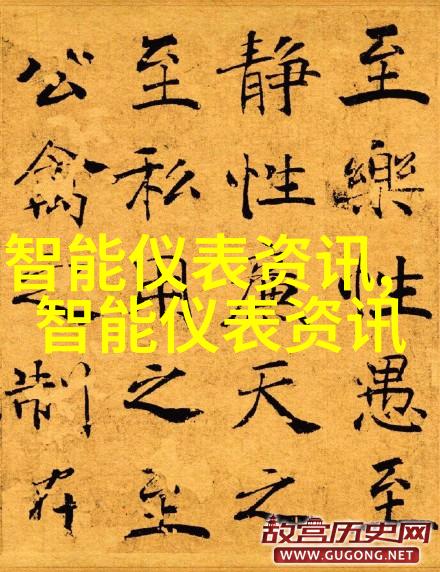 至樂性愚至
静性廉天之
至私用之至
公禽之制在
智能仪表资讯,
智能仪表资讯
故宫历史网
WWW.GUGONG.NET